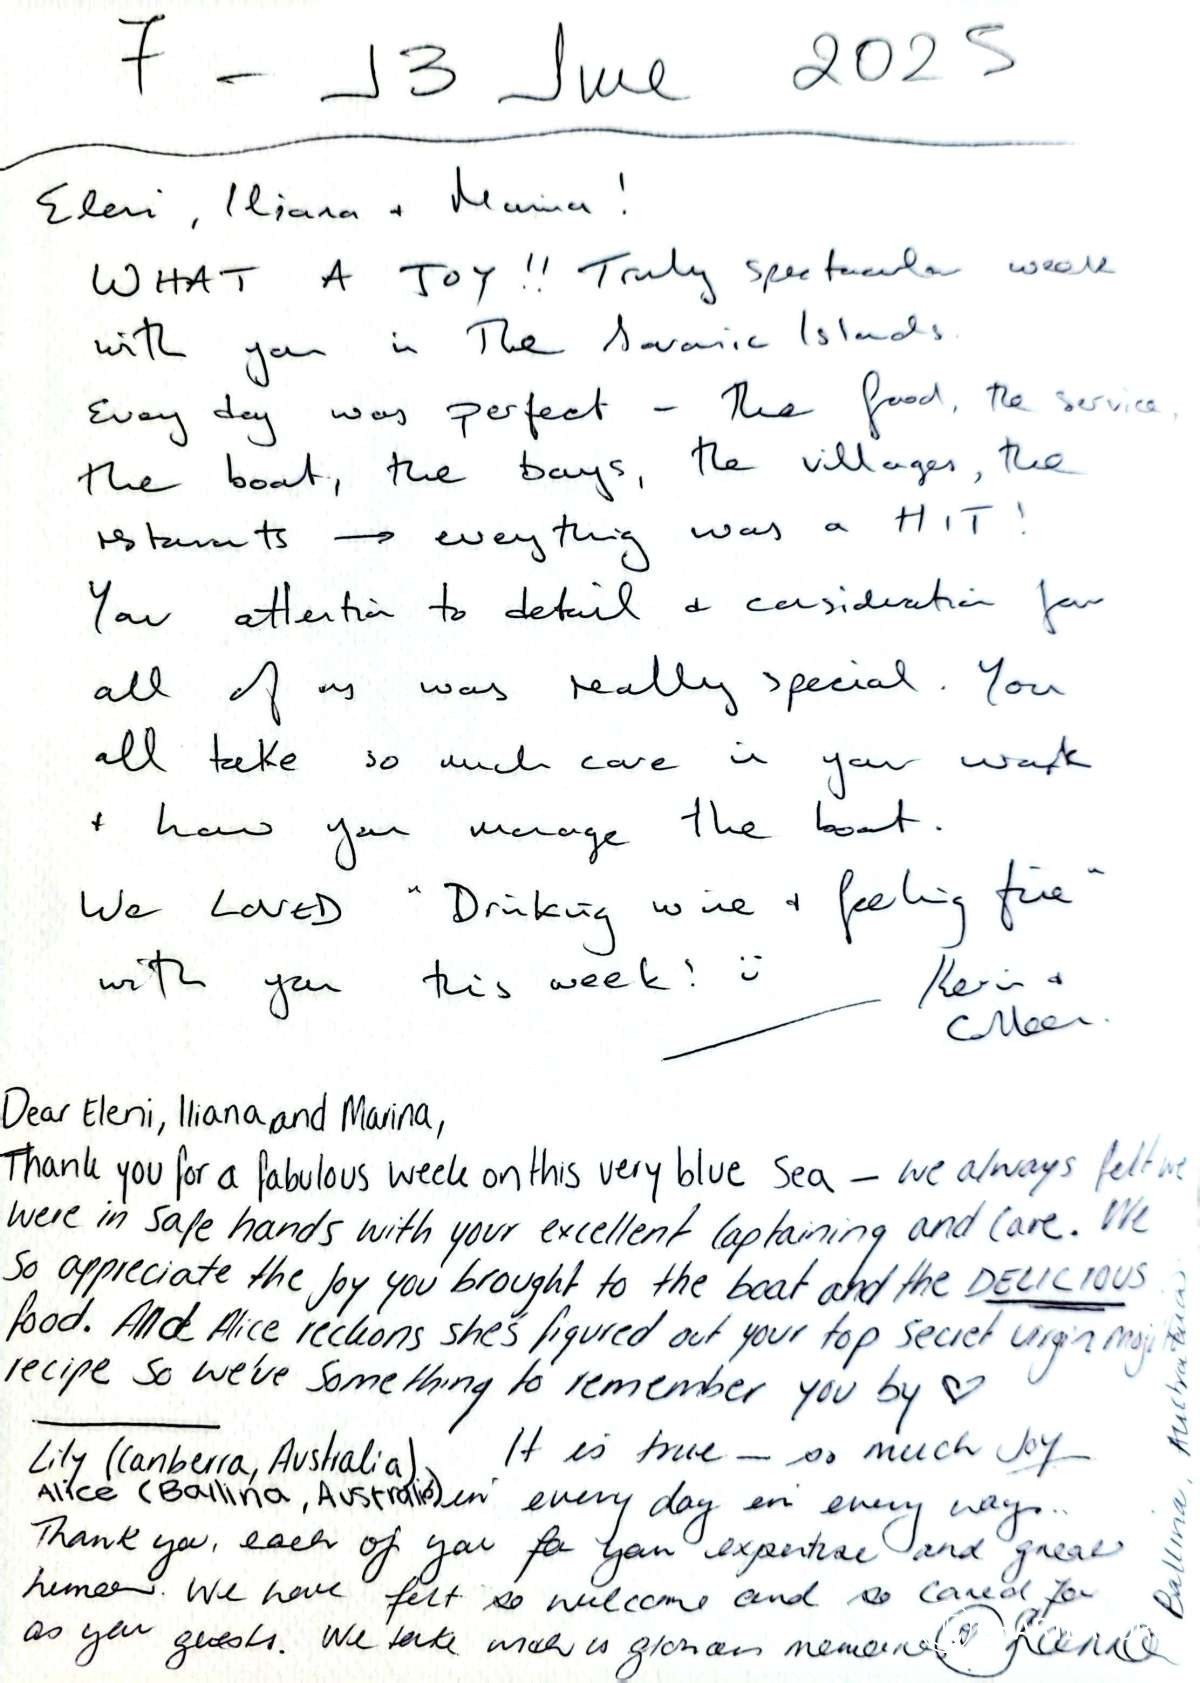 7 - 13 June 2025
Eleni, Iliana + Marina!
WHAT A JOY!! Truly spectacular week
with you in The Saronic Islands.
Every day was perfect - the food, the service,
the boat, the bays, the villages, the
restaurants → everything was a HIT!
Your attention to detail + consideration for
all of us was really special. You
all take so much care in your work
+ how you manage the boat.
We LOVED "Drinking wine + feeling fine"
with you this week! ☺
Kevin +
Colleen.
Dear Eleni, Iliana and Marina,
Thank you for a fabulous week on this very blue sea - we always felt we
were in safe hands with your excellent captaining and care. We
so appreciate the joy you brought to the boat and the DELICIOUS
food. And Alice reckons she's figured out your top secret virgin
recipe so we've something to remember you by ♡
Lily (Canberra, Australia)
Alice (Ballina, Australia)
It is true - so much joy
in every day in every way..
Thank you, each of you for your expertise and great
humour. We have felt so welcome and so cared for
as your guests. We take with us glorious memories
Ballina, Australia